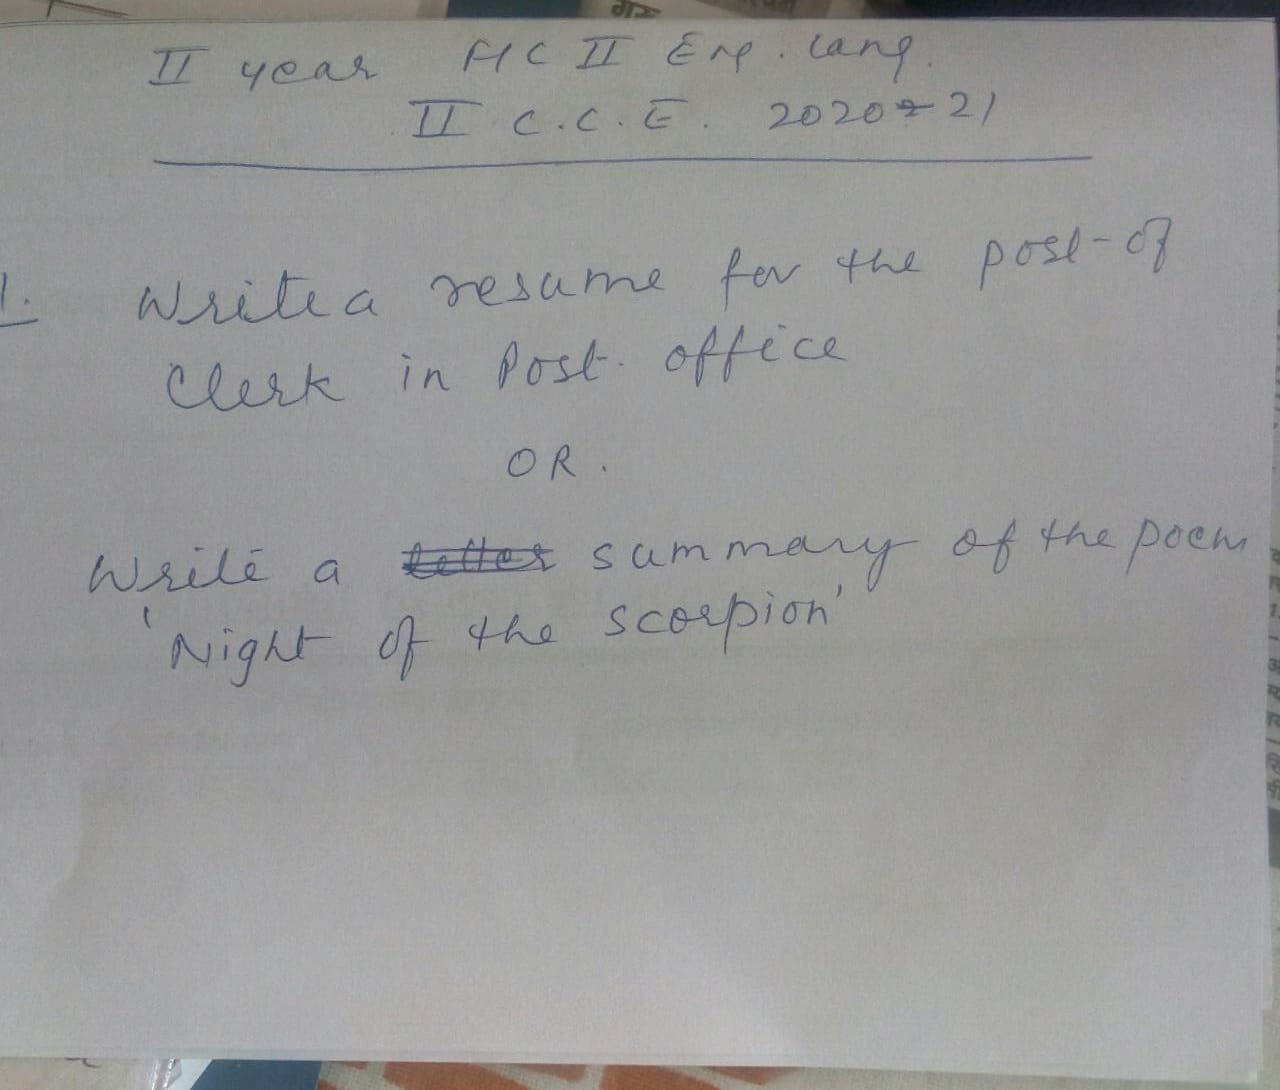 II year FC II Eng. Lang.
II C.C.E. 2020-21
1. Write a resume for the post-of
Clerk in Post. office
OR.
Write a letter summary of the poem
'Night of the scorpion'